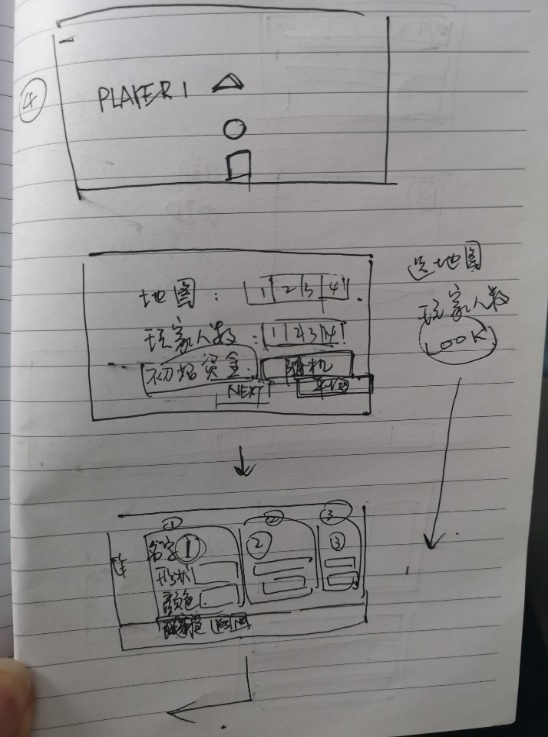 ④
PLAYER 1
地图： 1 2 3 4
玩家人数： 1 2 3 4
初始资金： 随机
NEXT
选地图
玩家人数
LOOK
① ② ③
名字 ① ② ③
颜色